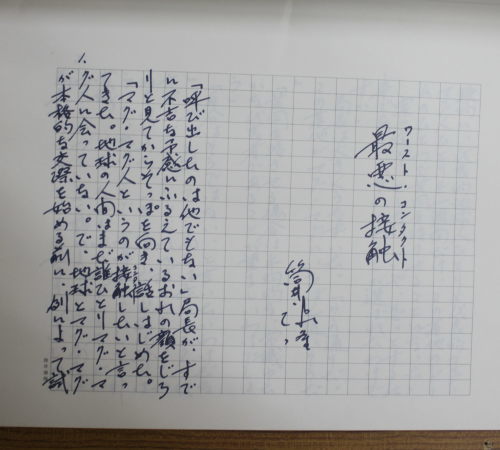 ワースト・コンタクト
最悪の接触
筒井康隆
「呼び出したのは他でもない」局長が、すで
に不吉な予感にふるえているおれの顔をじろ
りと見てからそっぽを向き、話しはじめた。
「マグ・マグ人というのが接触したいと言っ
てきた。地球の人間はまだ誰ひとりマグ・マ
グ人に会っていない。で、地球とマグ・マグ
が本格的な交際を始める前に、例によって試
1.